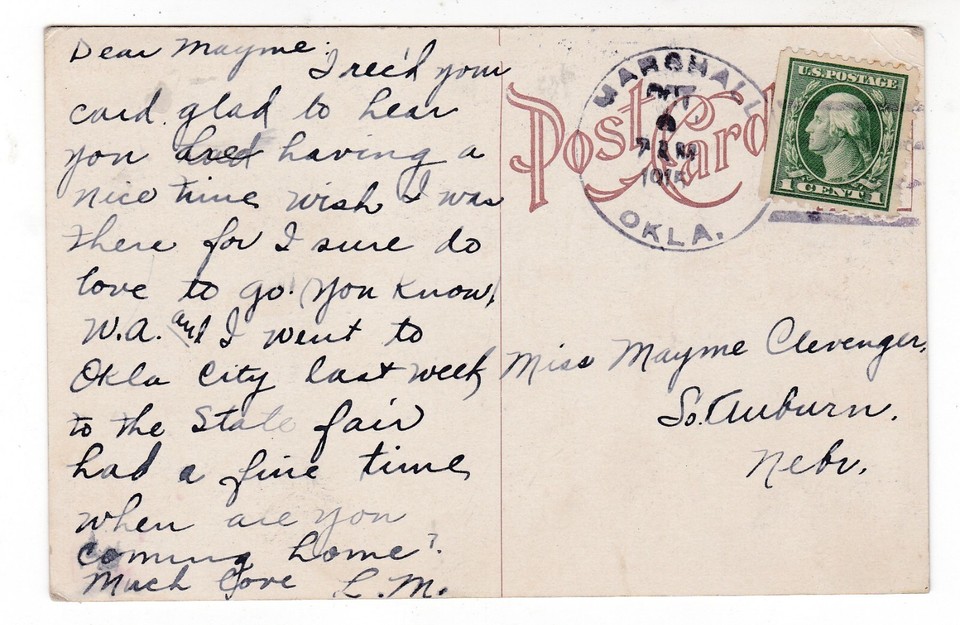 Dear Mayme:
I rec'd your
card. glad to hear
you having a
nice time wish I was
there for I sure do
love to go! (You know)
W.A. and I went to
Okla City last week
to the State fair
had a fine time
when are you
coming home?
Much Love L.M.
Post Card
MARSHALL
7 AM
1915
OKLA.
U.S. POSTAGE
1 CENT 1
Miss Mayme Clevenger,
So. Auburn,
Nebr.